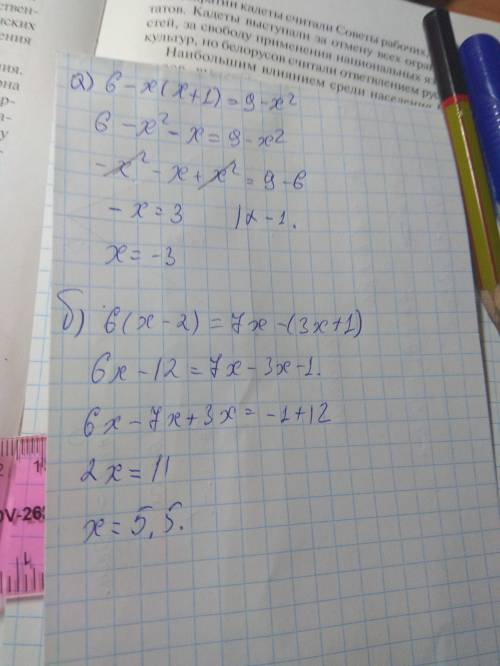 ратии кадеты считали Советы рабочих,
татов. Кадеты выступали за отмену всех огра
стей, за свободу применения национальных яз
культур, но белорусов считали ответвлением рус
Наибольшим влиянием среди населения
ствен-
ских
ения
ия.
рна
а) 6 - x(x+1) = 9 - x²
6 - x² - x = 9 - x²
-x² - x + x² = 9 - 6
-x = 3 |x - 1.
x = -3
б) 6(x - 2) = 7x - (3x+1)
6x - 12 = 7x - 3x - 1.
6x - 7x + 3x = -1 + 12
2x = 11
x = 5,5.
2 1
OV-26